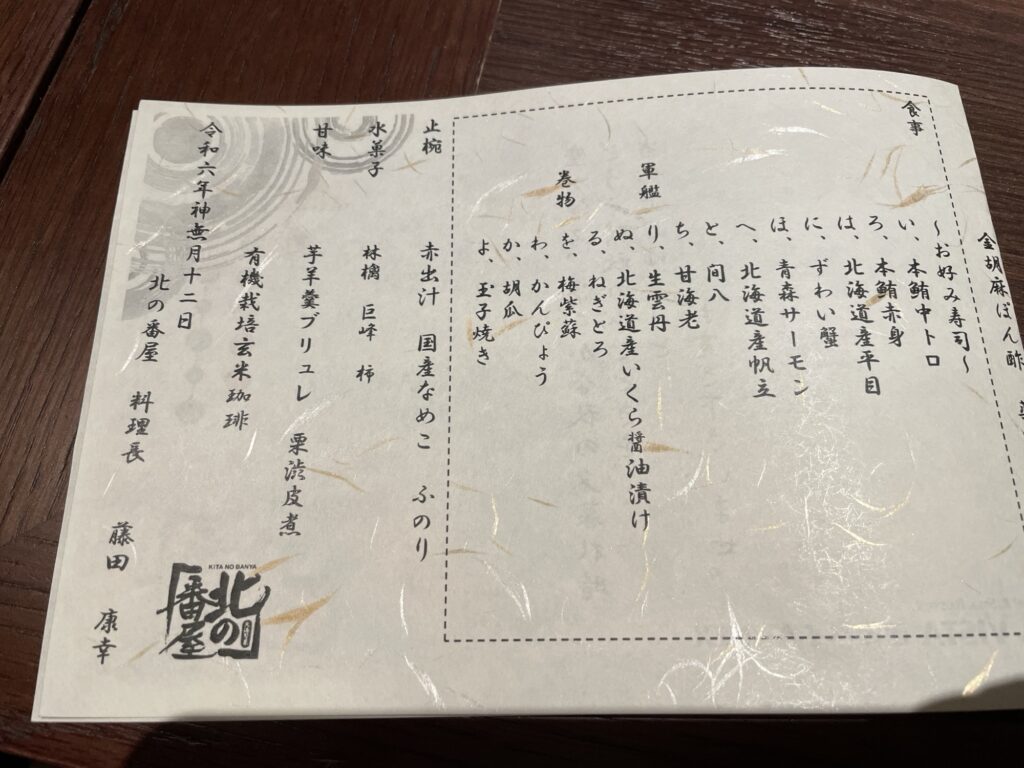 金胡麻ぽん酢
食事
～お好み寿司～
い、本鮪中トロ
ろ、本鮪赤身
は、北海道産平目
に、ずわい蟹
ほ、青森サーモン
へ、北海道産帆立
と、間八
ち、甘海老
軍艦
り、生雲丹
ぬ、北海道産いくら醤油漬け
る、ねぎとろ
巻物
を、梅紫蘇
わ、かんぴょう
か、胡瓜
よ、玉子焼き
止椀
赤出汁 国産なめこ ふのり
水菓子
林檎 巨峰 柿
甘味
芋羊羹ブリュレ 栗渋皮煮
有機栽培玄米珈琲
令和六年神無月十二日
北の番屋 料理長 藤田 康幸
KITA NO BANYA
北の番屋